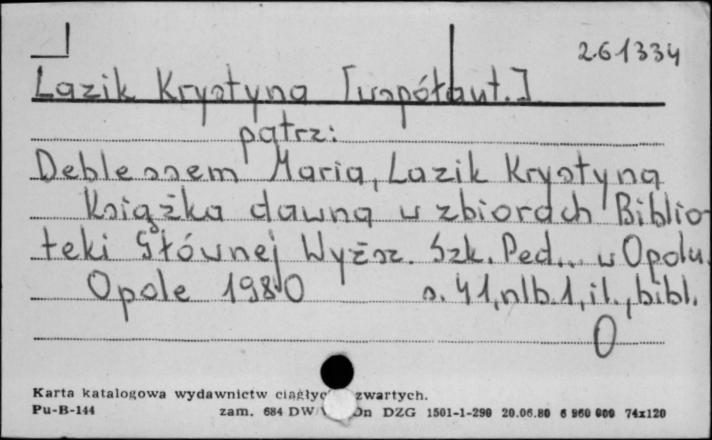 261334
Lazik Krystyna [współaut.]
patrz:
Deblessem Maria, Lazik Krystyna
Książka dawna w zbiorach Biblio-
teki Głównej Wyższ. Szk. Ped... w Opolu.
Opole 1980 s. 41, nlb. 1, il., bibl.
O
Karta katalogowa wydawnictw ciągłyc zwartych.
Pu-B-144 zam. 684 DW DZG 1501-1-290 20.06.80 6 960 000 74x120